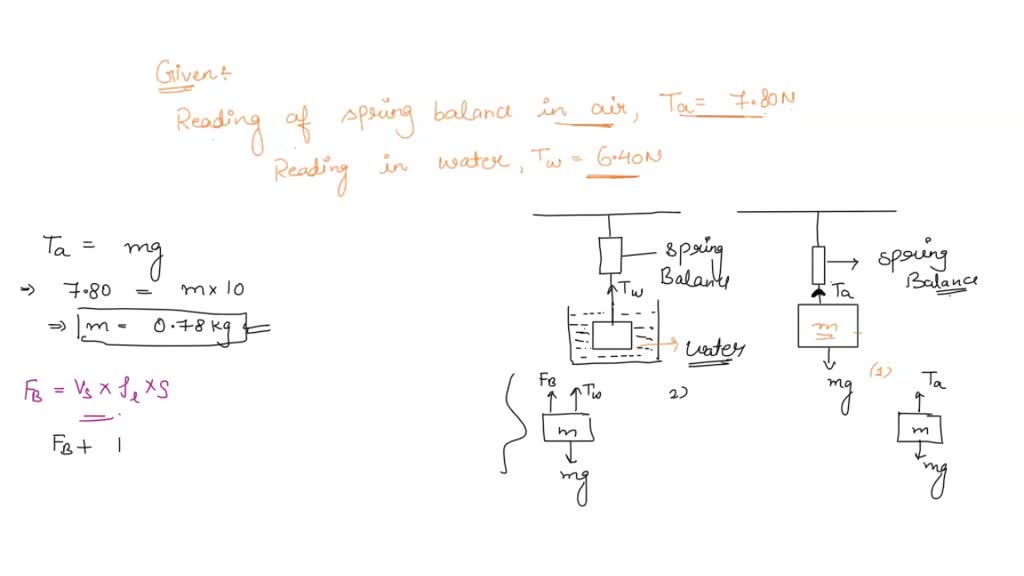 Given:
Reading of spring balance in air, Ta = 7.80N
Reading in water, Tw = 6.40N
Ta = mg
⇒ 7.80 = m x 10
⇒ m = 0.78 kg
FB = Vs x ρl x g
FB + 1
spring
Balance
Tw
water
FB
Tw
m
mg
2)
spring
Balance
Ta
m
mg
(1)
Ta
m
mg